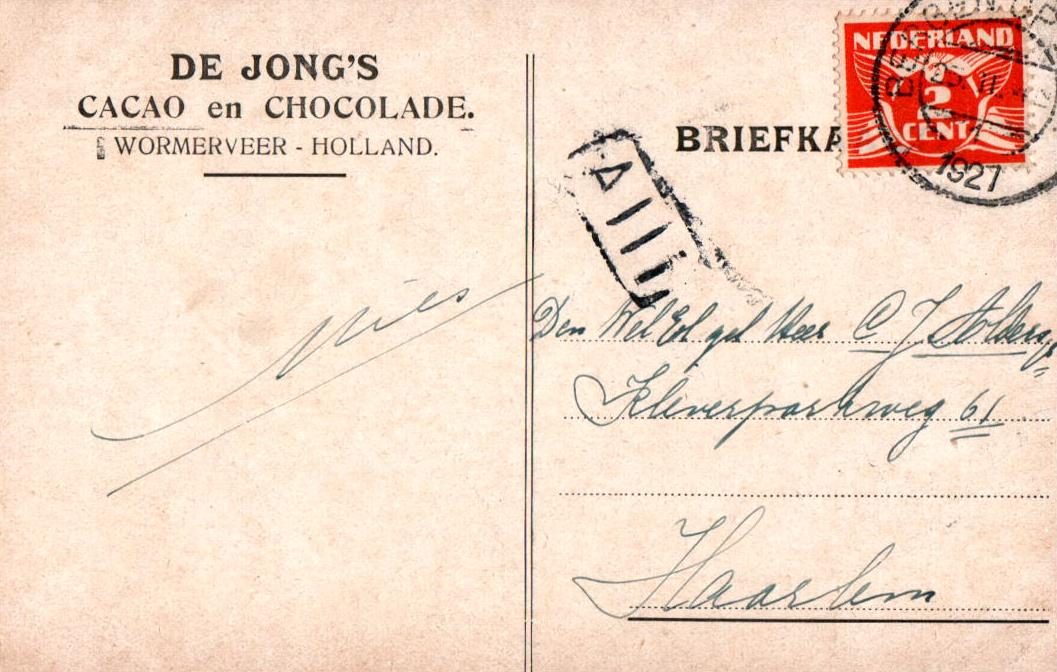 DE JONG'S
CACAO en CHOCOLADE.
WORMERVEER - HOLLAND.
BRIEFKA
NEDERLAND
2
CENT
1927
Den Wel Ed gel Heer C J
Kleverparkweg 61
Haarlem